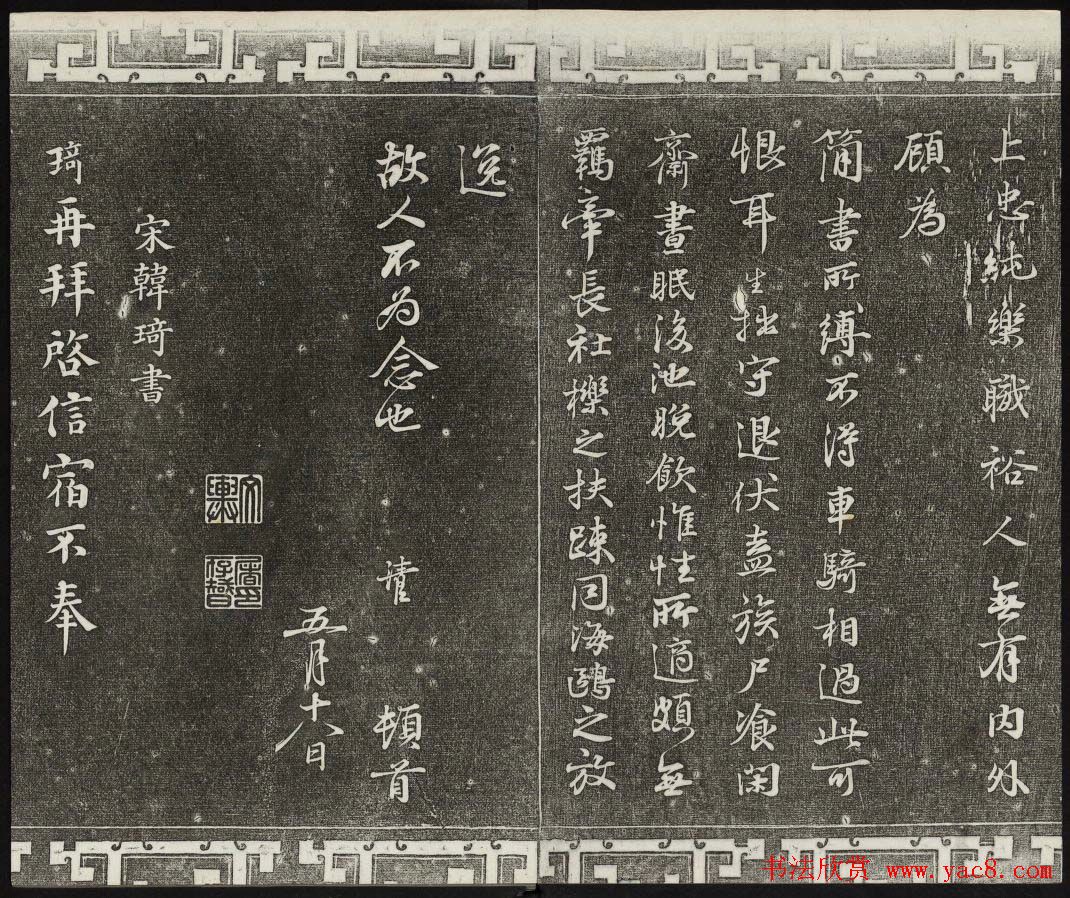 上忠純樂職裕人無有内外
顧為
簡書所縛不得車騎相過此可
恨耳生拙守退伏族尸飡閑
齋晝眠後池晚飲惟性所適頗無
羈牽長社櫟之扶踈同海鷗之放
逸
故人不为念也 清 頓首
五月十八日
宋韓琦書
琦再拜啓信宿不奉
书法欣赏 www.yac8.com